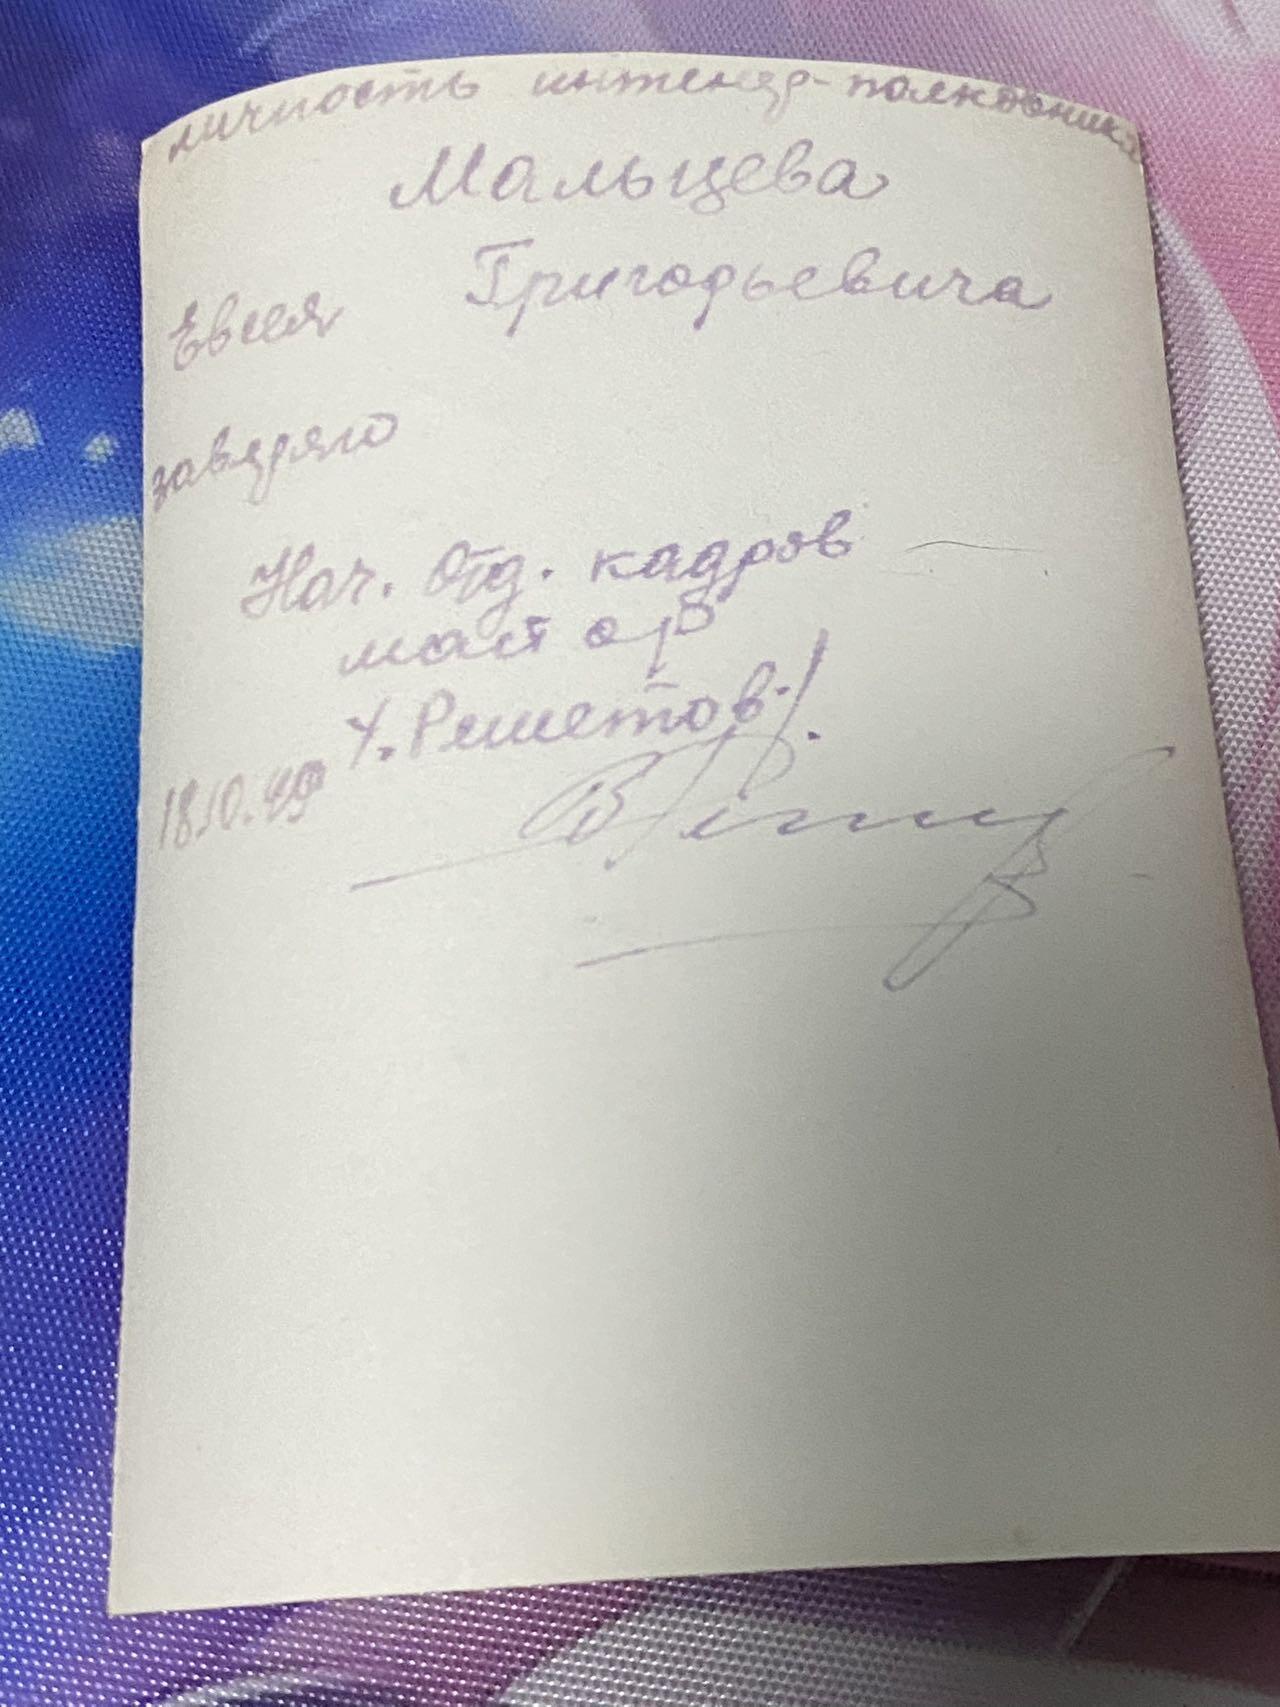 личность инженер-полковника
Мальцева
Евсея Григорьевича
заверяю
Нач. Отд. кадров
Решетов
18.10.49